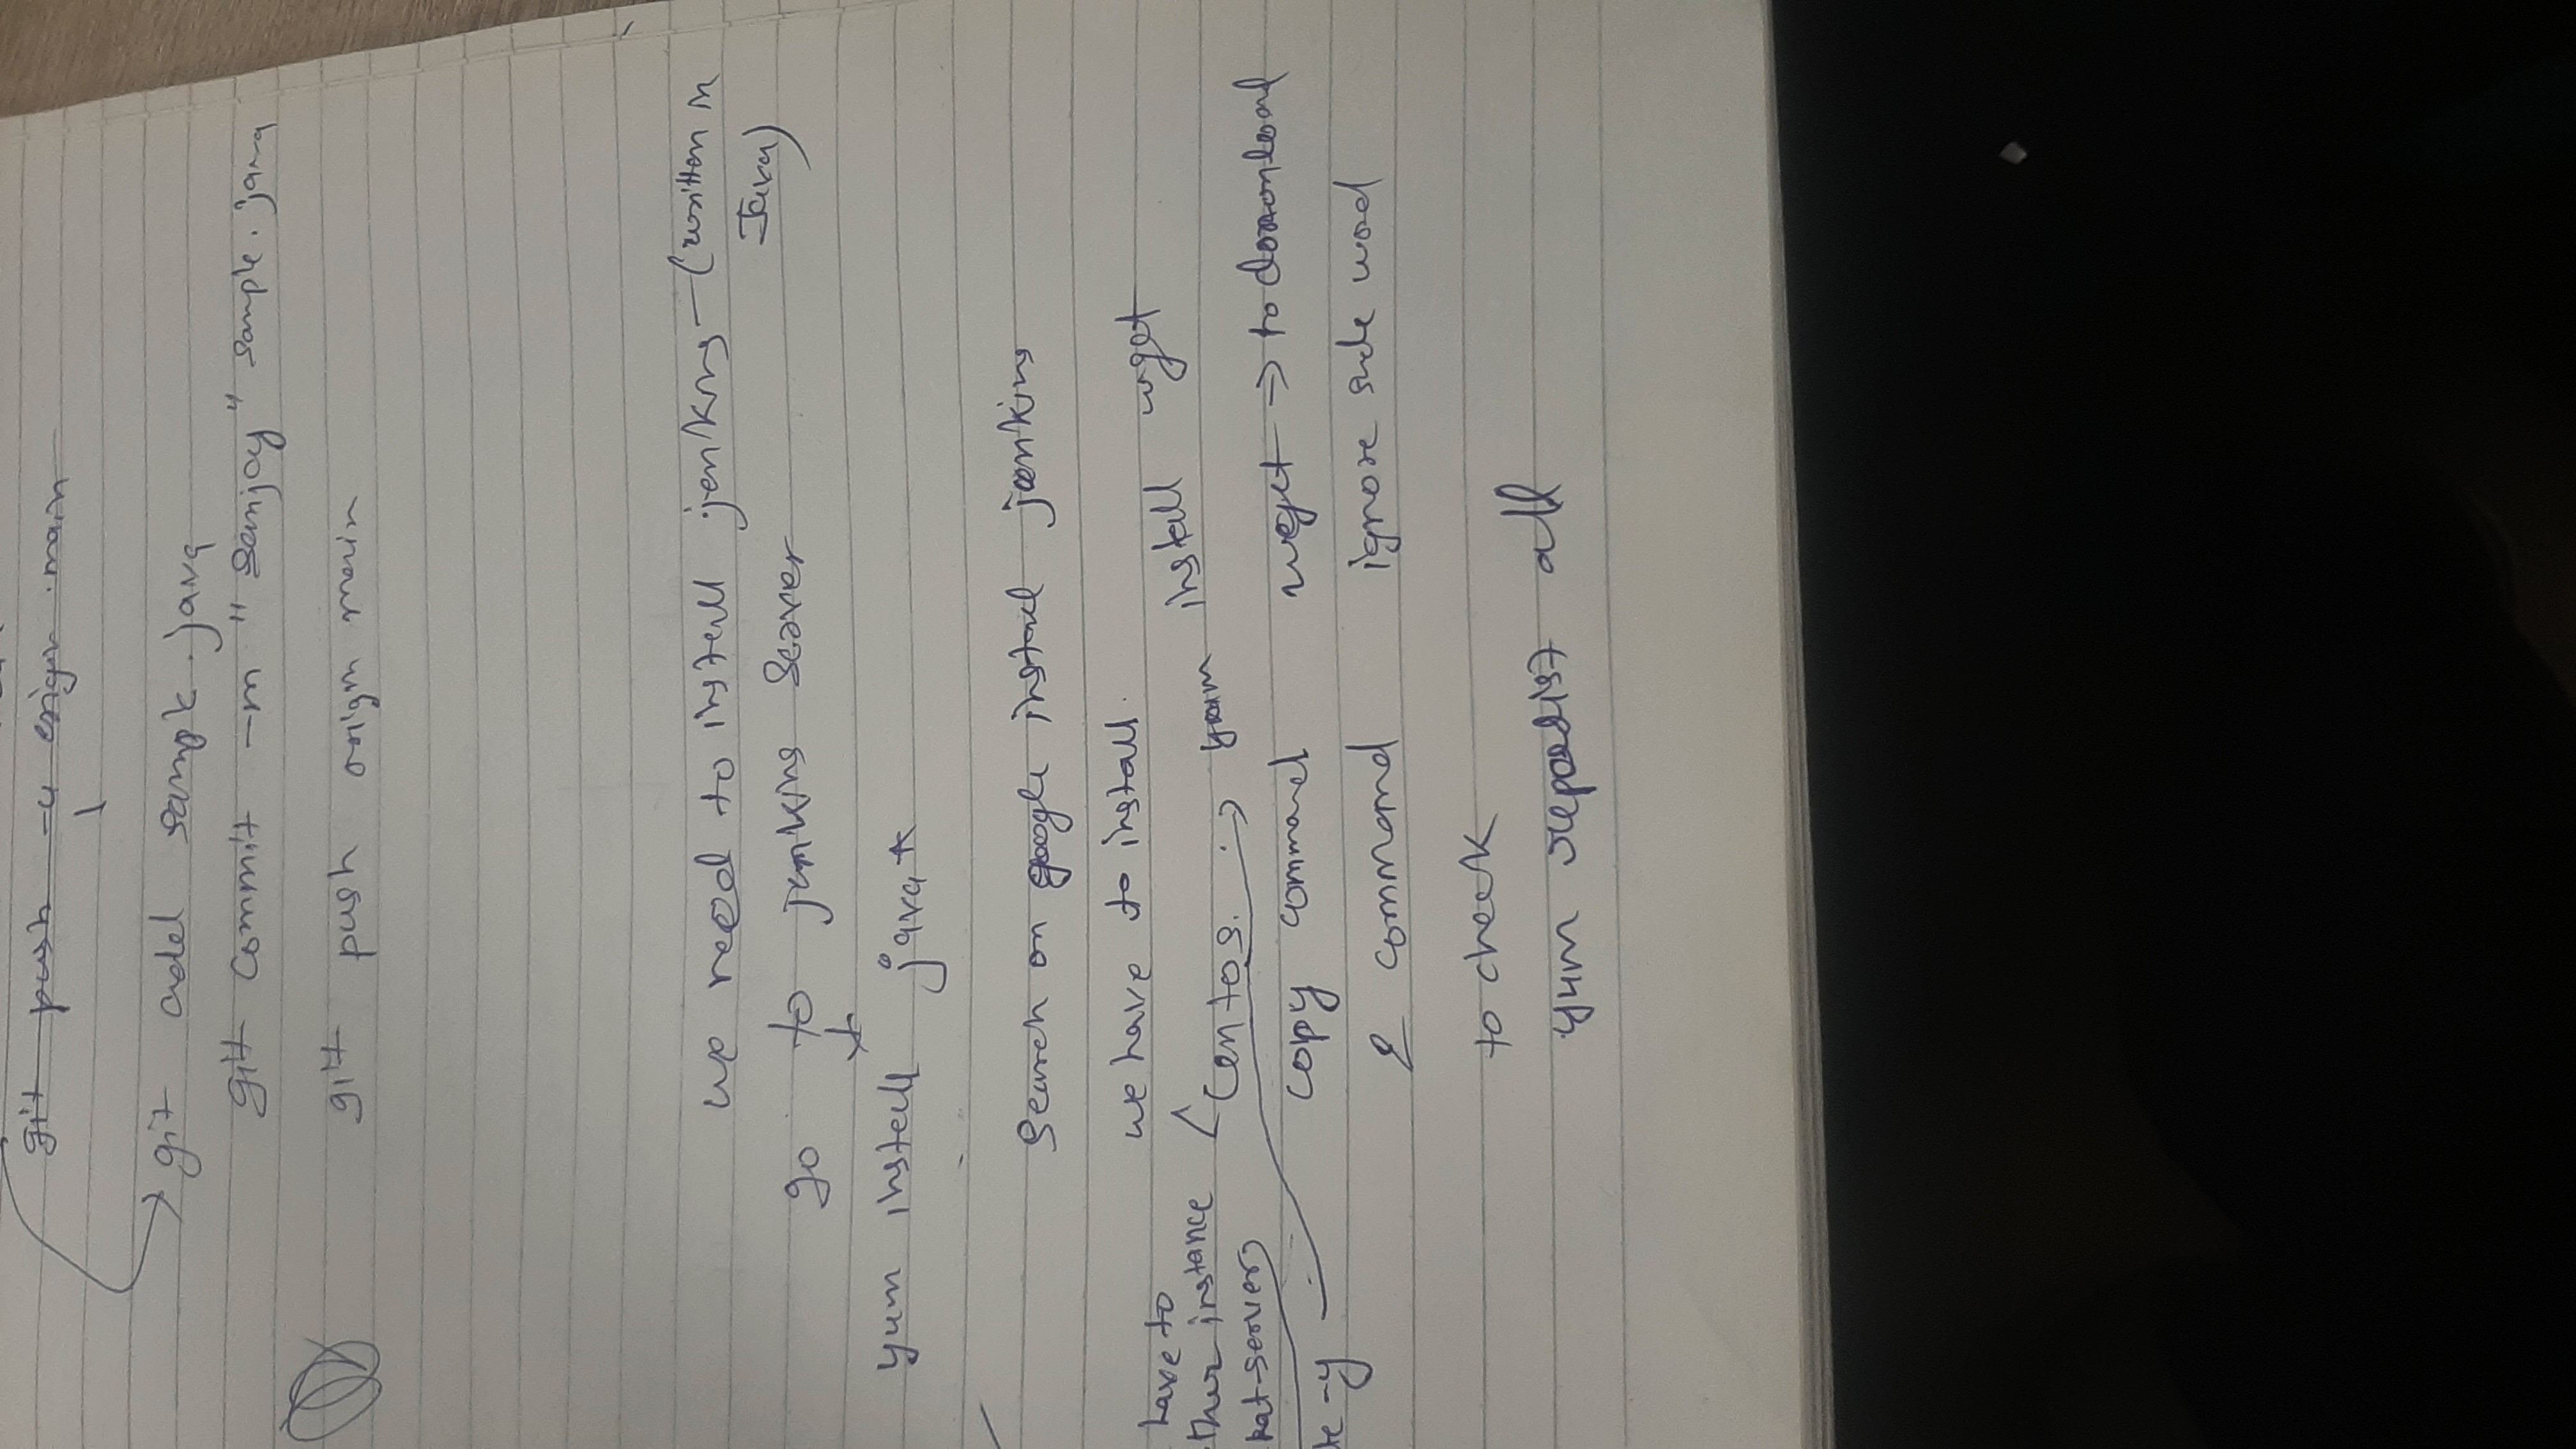 git push -u origin main
git add sample.java
git commit -m "Sanjay" sample.java
git push origin main
we need to install jenkins - (written in
Java)
go to jenkins Server
yum install java*
Search on google install jenkins
we have to install.
have to
instance
Centos. → yum install wget
copy command wget → to download
-y
2 command ignore sudo word
to check
yum repolist all